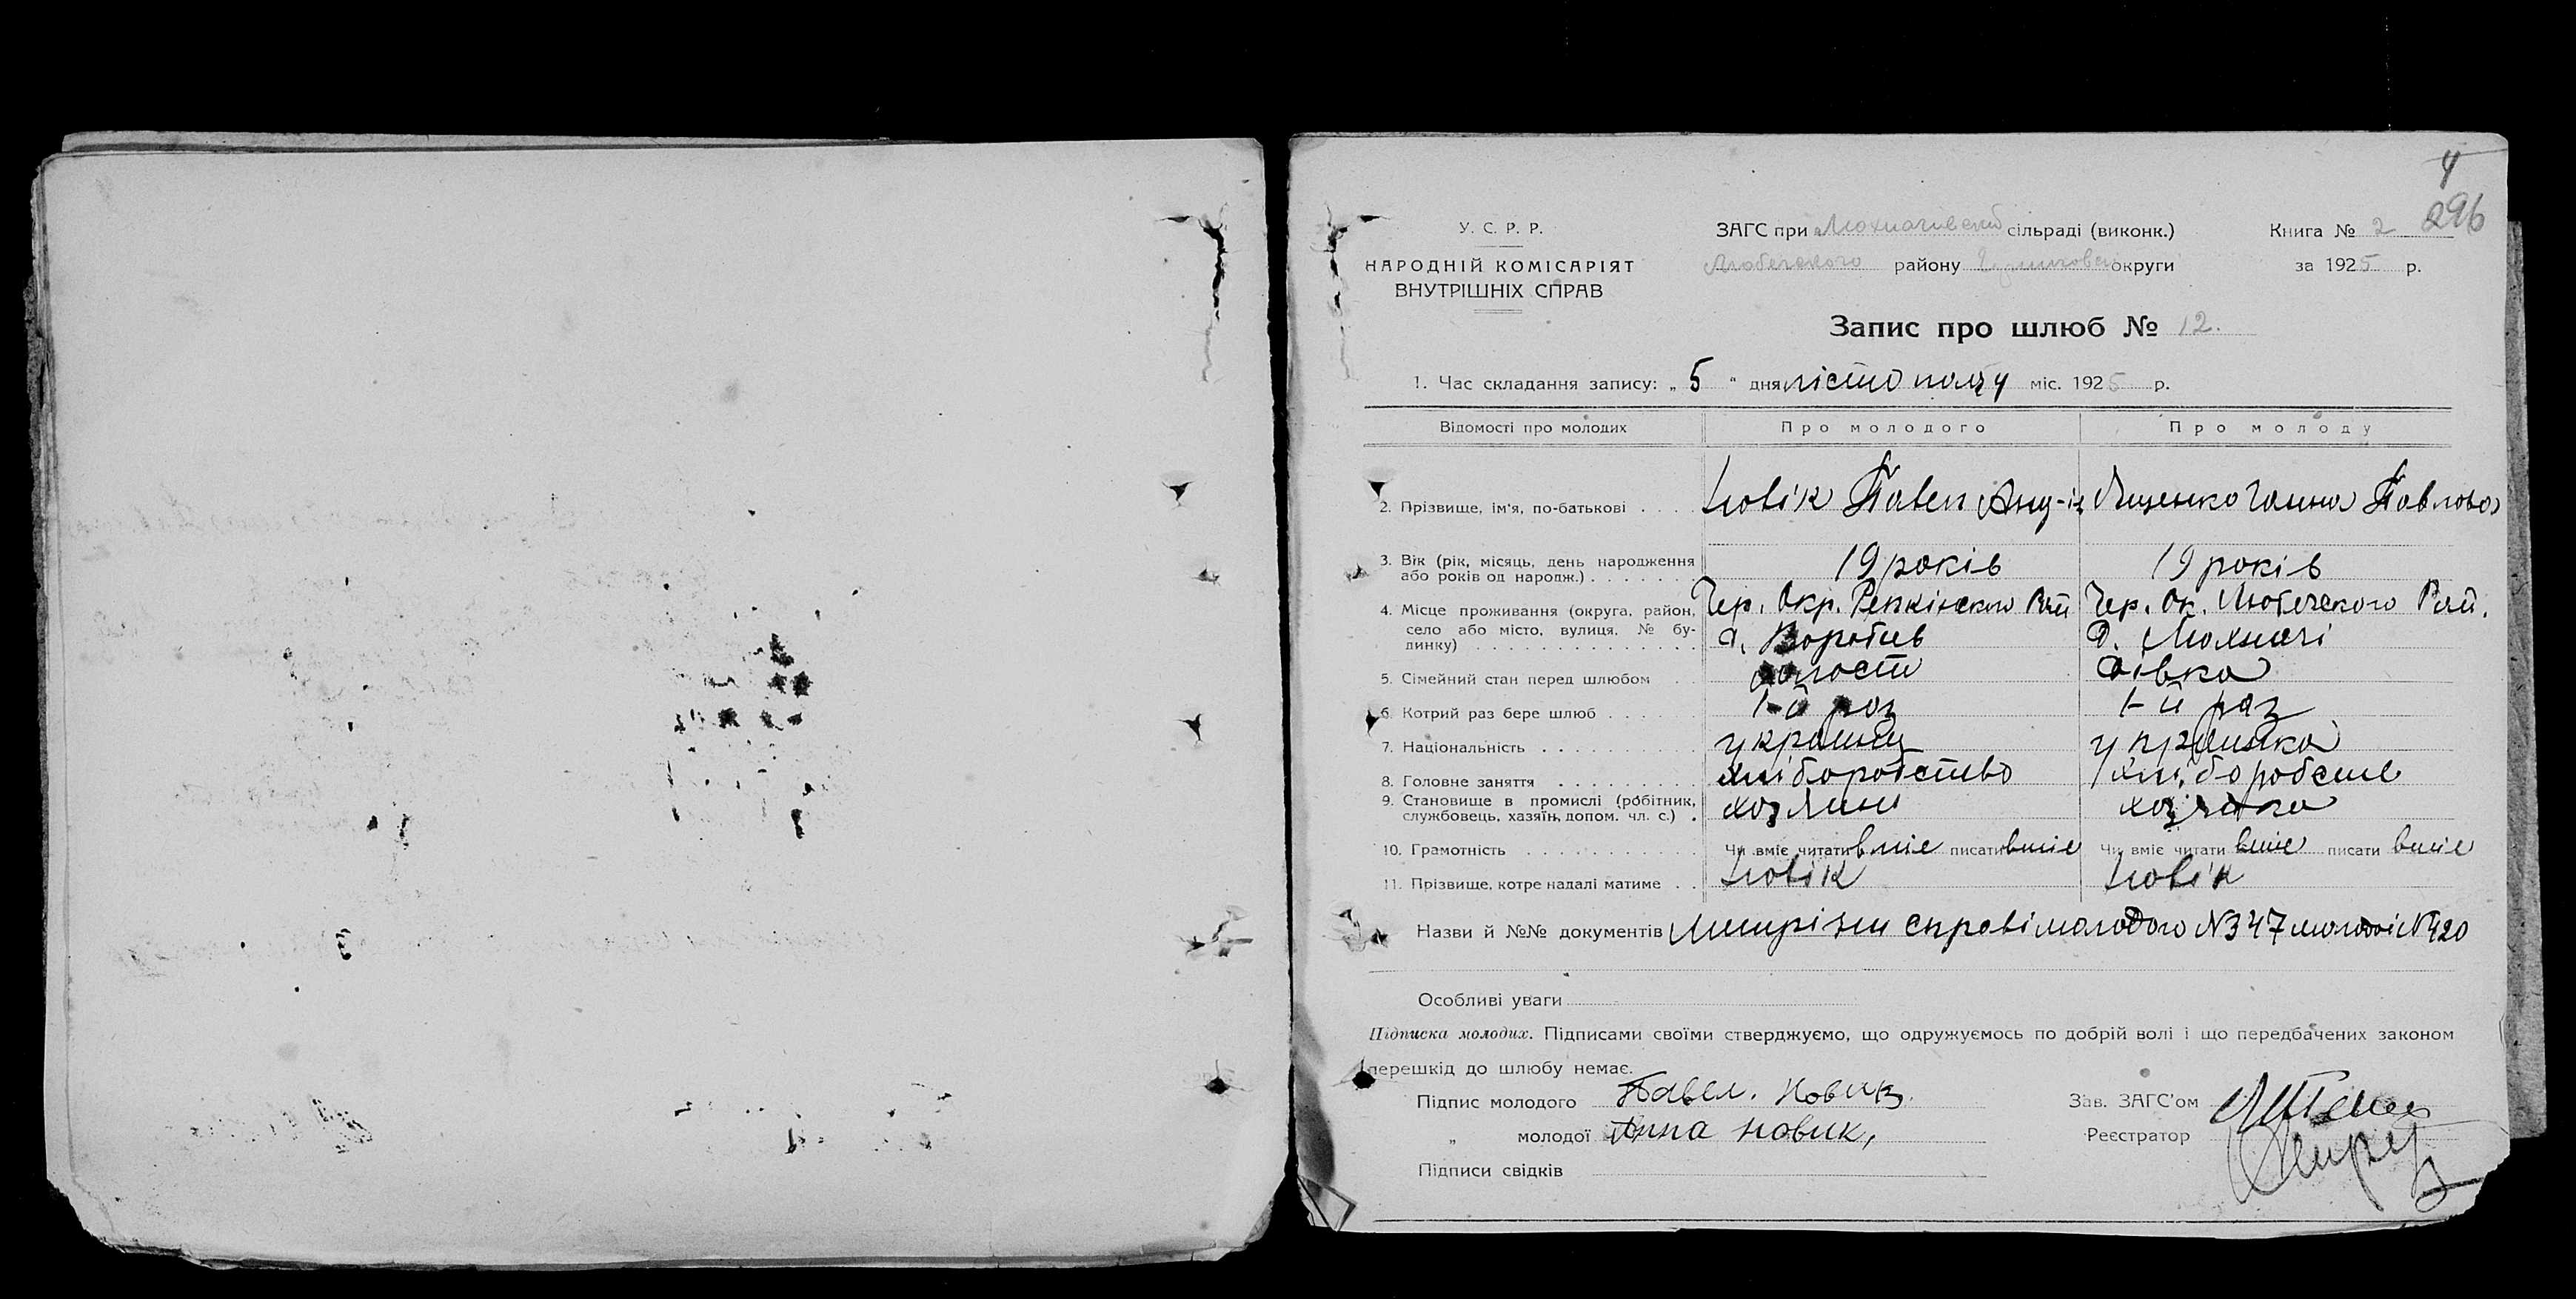 4
296
У. С. Р. Р.
НАРОДНІЙ КОМІСАРІЯТ
ВНУТРІШНІХ СПРАВ
ЗАГС при Мохначівській сільраді (виконк.)
Любечського району округи
Книга № 2
за 1925 р.
Запис про шлюб № 12.
1. Час складання запису: „ 5 “ дня лістопаду міс. 1925 р.
Відомості про молодих Про молодого Про молоду
2. Прізвище, ім'я, по-батькові . . . Новік Павел Анд-іч Ященко Ганна Павлова
3. Вік (рік, місяць, день народження 19 років 19 років
або років од народж.) . . . . . . .
4. Місце проживання (округа, район, Чер. Окр. Репкінского Рай Чер. Ок. Любечского Рай.
село або місто, вулиця, № бу- д. Воротів Д. Мохначі
динку) . . . . . . . . . . . . . .
5. Сімейний стан перед шлюбом . холост дівка
6. Котрий раз бере шлюб . . . . . . 1-й раз 1-й раз
7. Національність . . . . . . . . . . украинц
8. Головне заняття . . . . . . . . . хліборобство хліборобств
9. Становище в промислі (робітник, хозяин хозяйка
службовець, хазяїн, допом. чл. с.) .
10. Грамотність . . . . . . . . . . . Чи вміє читати вміє писати вміє Чи вміє читати вміє писати вміє
11. Прізвище, котре надалі матиме . . Новік Новік
Назви й №№ документів справі молодого N347 молодоі N420
Особливі уваги
Підписка молодих. Підписами своїми стверджуємо, що одружуємось по добрій волі і що передбачених законом
перешкід до шлюбу немає.
Підпис молодого Павел. Новик
Зав. ЗАГС'ом
„ молодої Анна Новик,
Реєстратор
Підписи свідків